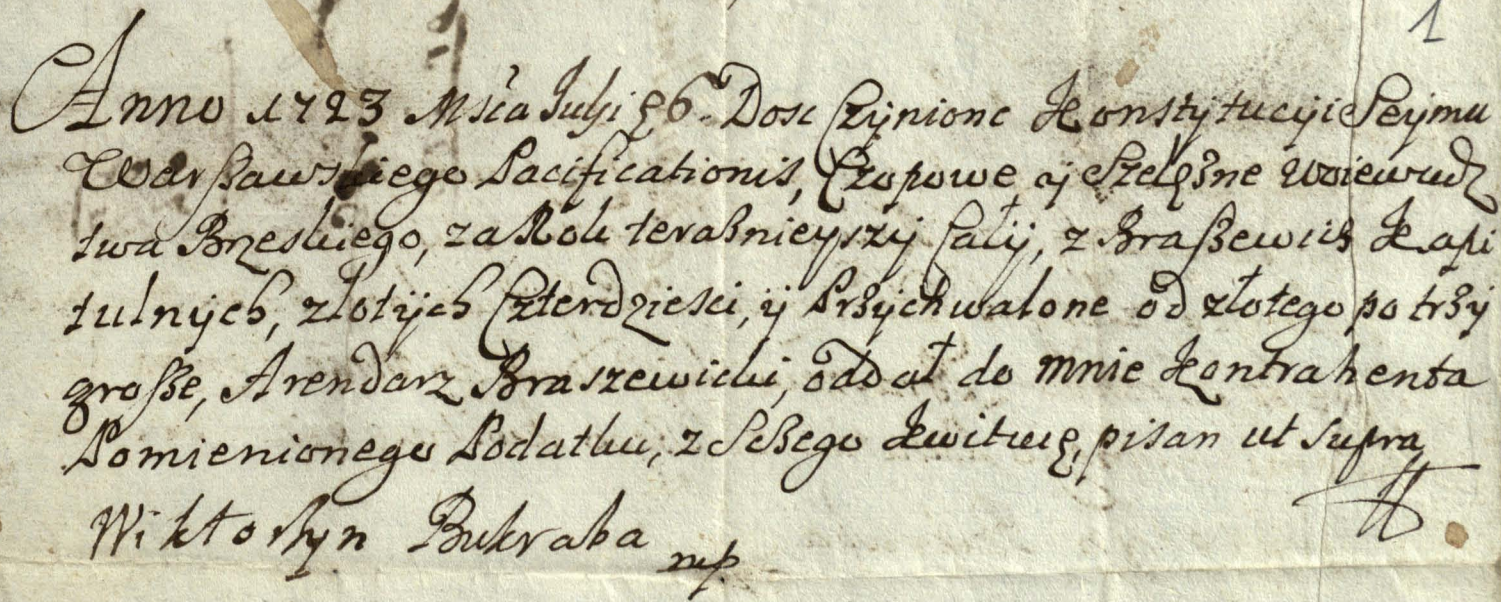 1
Anno 1723 Msca Julji 26. Dosc Czÿnionc Konstÿtucÿi Seÿmu
Warßawskiego Pacificationis, Czopowe ÿ Szelężne Woiewudz
twa Brzeskiego, za Rok teraßnieÿszÿ Całÿ, z Braßewicz Kapi
tulnÿch, złotÿch Czterdziesci, ÿ Przÿchwalone od złotego po trzÿ
große, Arendarz Braszewicki, oddał do mnie Kontrahenta
Pomienionego Podatku, z Czego Kwituię, pisan ut supra
Wiktorÿn Bukraba mp